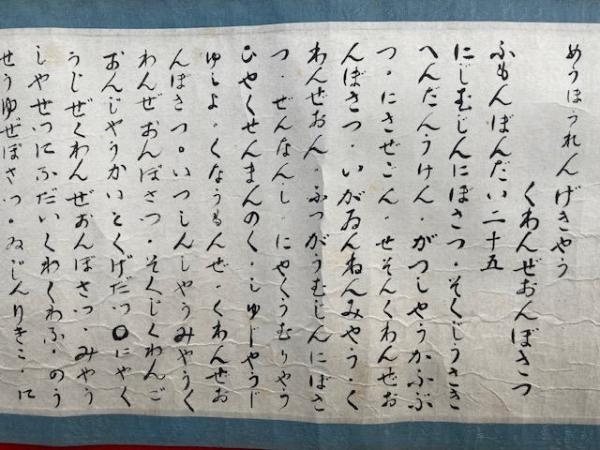 めうほうれんげきやう
くわんぜおんぼさつ
ふもんぼんだい二十五
にじむじんにぼさつ・そくじうささ
へんだんうけん・がつしやうかふぶ
つ。にさぜごん・せそんくわんぜお
んぼさつ・いがゐんねんみやう・く
わんぜおん・ふつがうむじんにぼさ
つ・ぜんなんし・にやくうむりやう
ひやくせんまんのく・しゆじやうじ
ゆしよ・くなうもんぜ・くわんぜお
んぼさつ。いつしんしやうみやうく
わんぜおんぼさつ・そくじくわんご
おんじやうかいとくげだつ〇にやく
うじぜくわんぜおんぼさつ・みやう
しやせつにふだいくわくわふ・のう
せうゆぜぼさつ。ゐじんりきこ・に